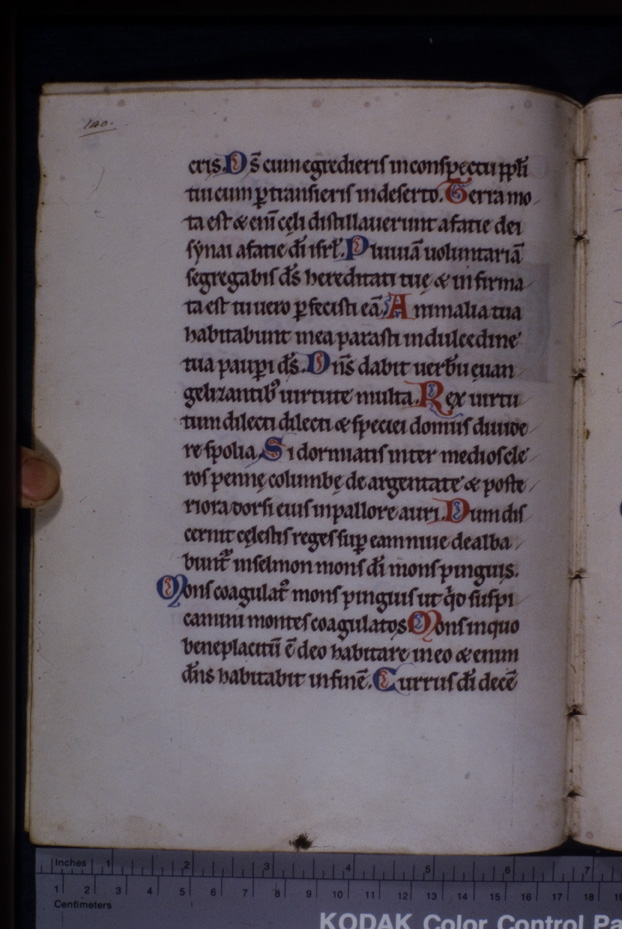 140.
cris. Ds̄ cum egredieris in conspectu pp̄li
tui cum ꝑtransieris in deserto. Terra mo
ta est & eni᷒ celi distillauerunt a facie dei
synai a facie dī isrl̄. Pluuiā uoluntariā
segregabis ds̄ hereditati tuę & infirma
ta est tu uero ꝑfecisti eā. Animalia tua
habitabunt in ea parasti in dulcedine
tua pauꝑi ds̄. Dn̄s dabit uerbū euan
gelizantib; uirtute multa. Rex uirtu
tum dilecti dilecti & speciei domus diuide
re spolia. Si dormiatis inter medios cle
ros pennę columbę deargentate & poste
riora dorsi eius in pallore auri. Dum dis
cernit cęlestis reges suꝑ eam niue dealba
bunt᷑ in selmon mons dī mons pinguis.
Mons coagulat᷑ mons pinguis ut qd̄ suspi
camini montes coagulatos. Mons in quo
beneplacitū ē deo habitare in eo & enim
dn̄s habitabit in finē. Currus dī decē
Inches 1 2 3 4 5 6 7
1 2 3 4 5 6 7 8 9 10 11 12 13 14 15 16 17 18 19
Centimeters
KODAK Color Control Pa